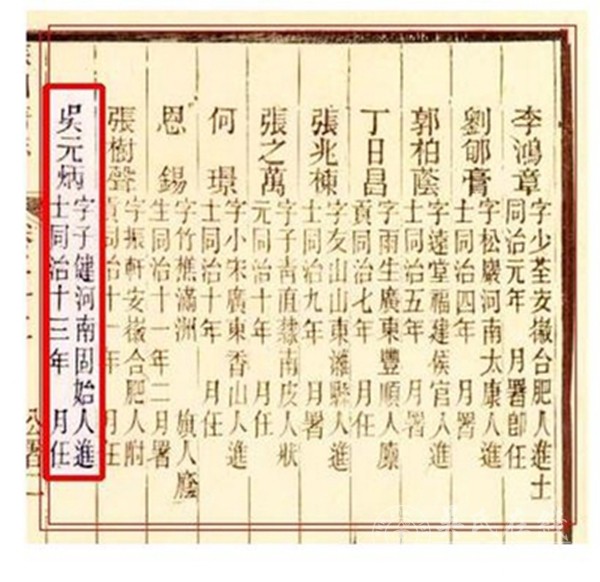 李鴻章
字少荃安徽合肥人進士
同治元年 月署卽任
劉郇膏
字松巖河南太康人進
士同治四年 月署
郭柏蔭
字遠堂福建侯官人進
士同治五年 月署
丁日昌
字雨生廣東豐順人廩
貢同治七年 月任
張兆棟
字友山山東濰縣人進
士同治九年 月署
張之萬
字子青直隸南皮人狀
元同治十年 月任
何璟
字小宋廣東香山人進
士同治十年 月任
恩錫
字竹樵滿洲 旗人廕
生同治十一年二月署
張樹聲
字振軒安徽合肥人附
貢同治十一年 月任
吳元炳
字子健河南固始人進
士同治十三年 月任
公署